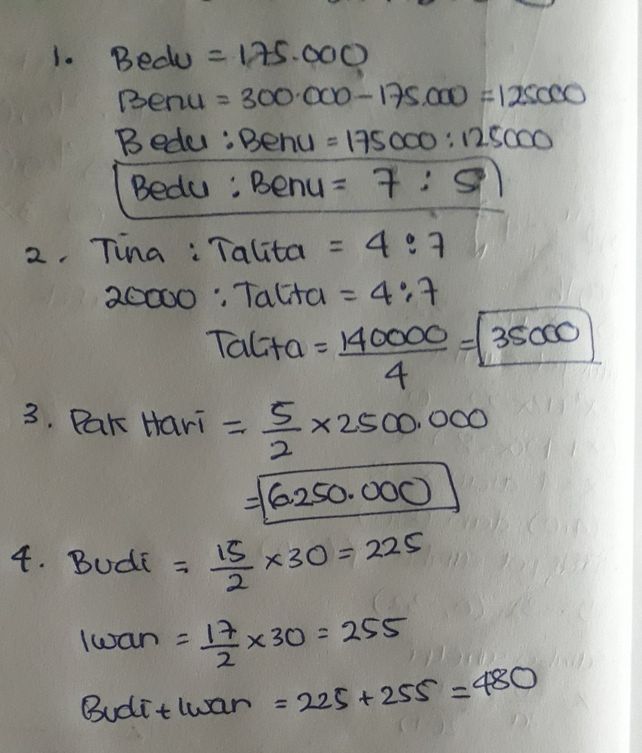 1. Bedu = 175.000
Benu = 300.000 - 175.000 = 125000
Bedu : Benu = 175000 : 125000
Bedu : Benu = 7 : 5
2. Tina : Talita = 4 : 7
20000 : Talita = 4 : 7
Talita = 140000/4 = 35000
3. Pak Hari = 5/2 × 2500.000
= 6.250.000
4. Budi = 15/2 × 30 = 225
Iwan = 17/2 × 30 = 255
Budi + Iwan = 225 + 255 = 480